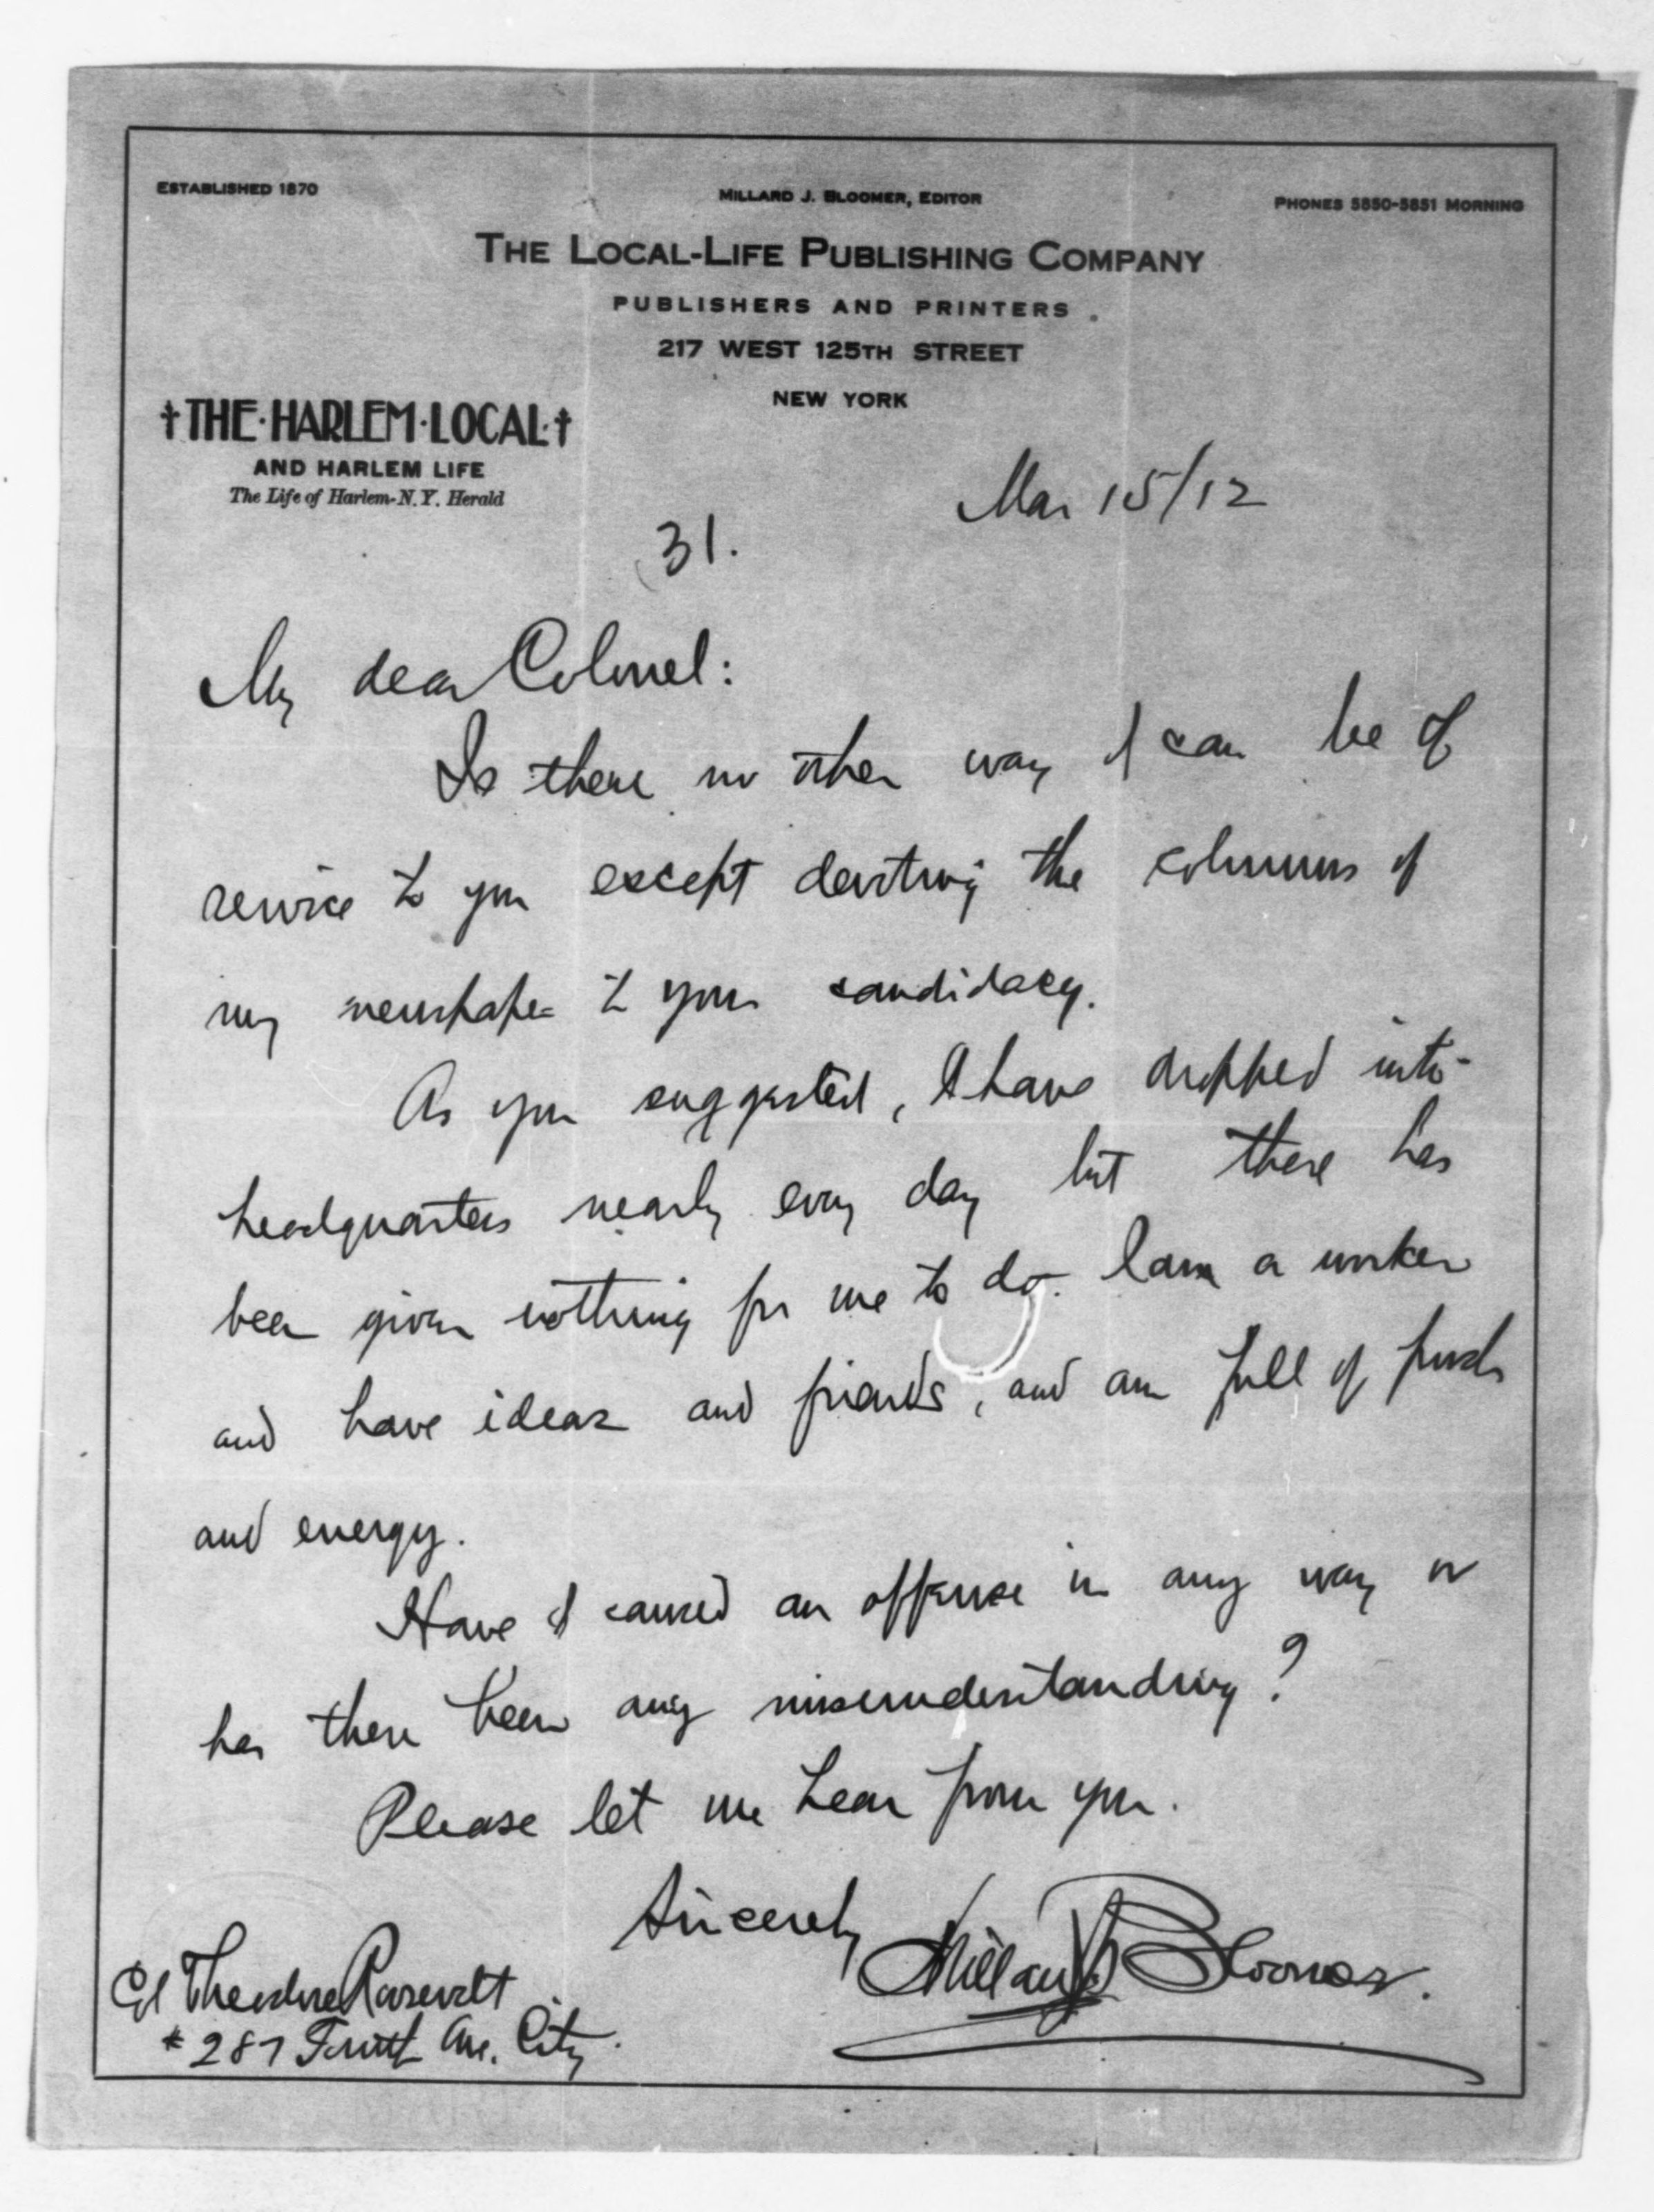 ESTABLISHED 1870
MILLARD J. BLOOMER, EDITOR
PHONES 5850-5851 MORNING
THE LOCAL-LIFE PUBLISHING COMPANY
PUBLISHERS AND PRINTERS.
217 WEST 125TH STREET
NEW YORK
†THE·HARLEM·LOCAL·†
AND HARLEM LIFE
The Life of Harlem-N.Y. Herald
Mar 15/12
31.
My dear Colonel:
Is there no other way I can be of
service to you except devoting the columns of
my newspaper to your candidacy.
As you suggested, I have dropped into
headquarters nearly every day but there has
been given nothing for me to do. I am a worker
and have ideas and friends, and am full of push
and energy.
Have I caused an offense in any way or
has there been any misunderstanding?
Please let me hear from you.
Sincerely
Millard J. Bloomer.
Col Theodore Roosevelt
# 287 Fourth Ave. City.